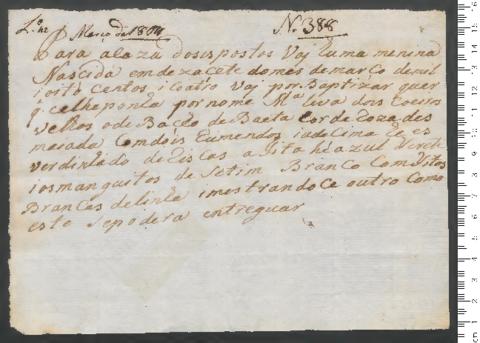 L.º 42 Março de 1804 Nº 388
Para a caza dos espostos Vaj huma menina
Nascida em dezacete do mes de março de mil
ioito centos i coatro Vaj por Baptizar quer
q. ce lhe ponha por nome M.ª leva dois Coeiros
velhos o de Baixo de Baeta Cor de Roza des
maiada Com dois Remendos i a de Cima he es
verdinhado de Riscas a fita hé azul
ios manguitos de Setim Branco Com fitos
Brancas de linha i mostrandoce outro Como
este Se podera entreguar